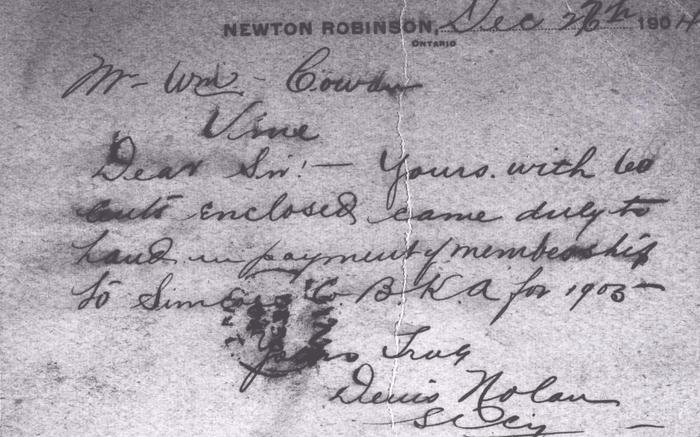 NEWTON ROBINSON, Dec 26th 1904
ONTARIO
Mr - Wm - Cowan
Vine
Dear Sir! — Yours. with 60
cents enclosed came duly to
hand in payment of membership
to Simcoe Co B K A for 1905 —
Yours Truly
Denis Nolan
Secy —